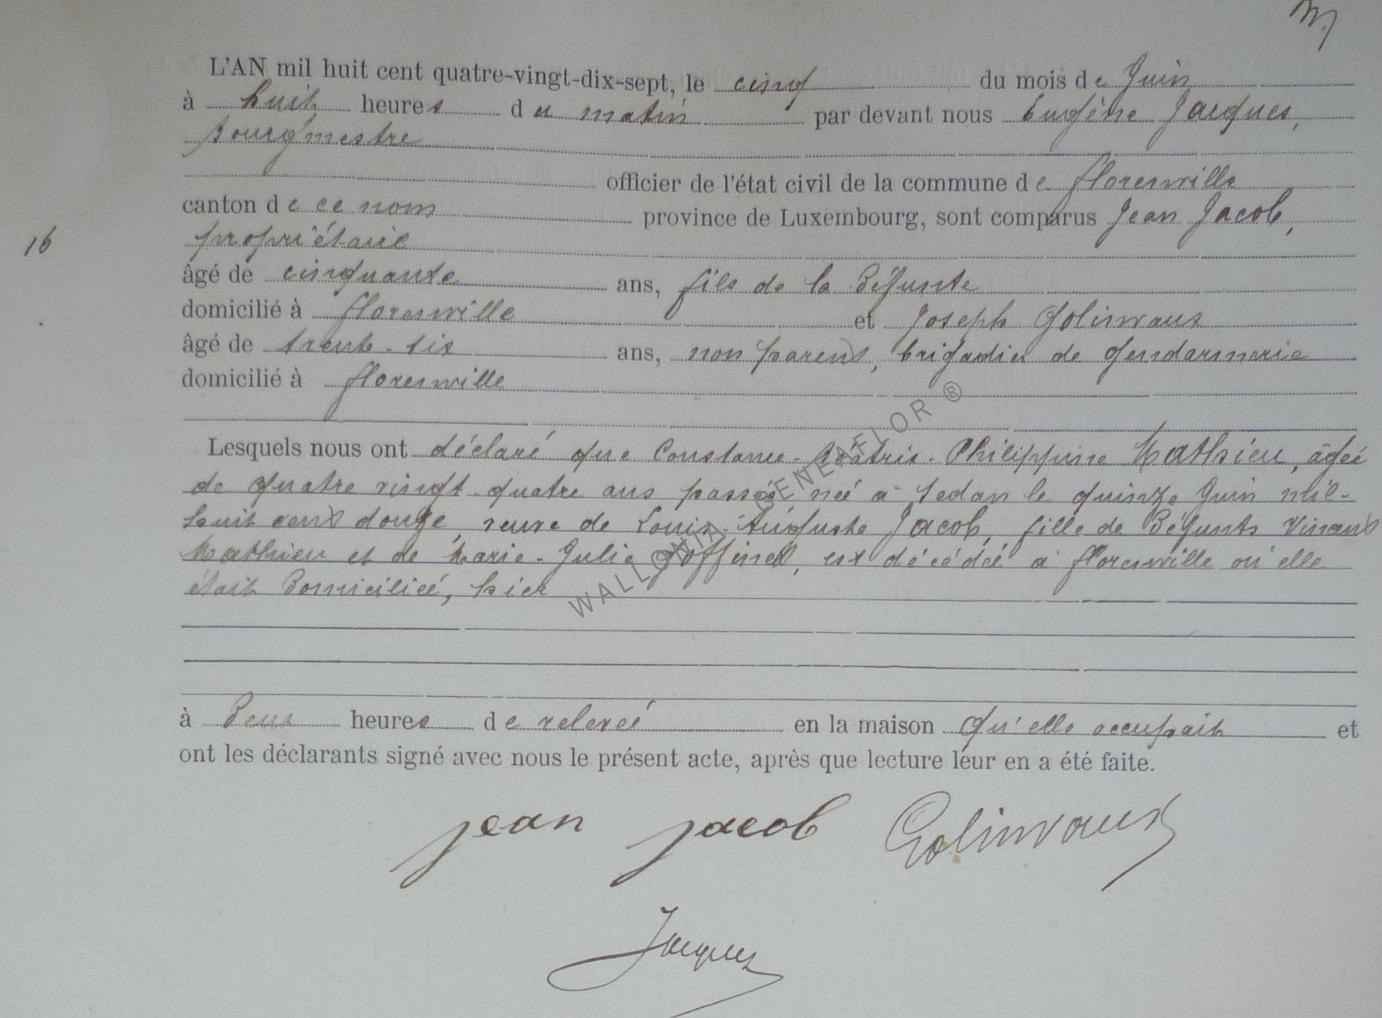 L'AN mil huit cent quatre-vingt-dix-sept, le cinq du mois de Juin
à huit heures du matin par devant nous Eugène Jacques,
bourgmestre
officier de l'état civil de la commune de florenville
canton de ce nom province de Luxembourg, sont comparus Jean Jacob,
propriétaire
16
âgé de cinquante ans, fils de la défunte
domicilié à florenville et Joseph Golinvaux
âgé de trente-six ans, non parent, brigadier de gendarmerie
domicilié à florenville
Lesquels nous ont déclaré que Constance-Béatrix-Philippine Mathieu, âgée
de quatre vingt-quatre ans passés née à Sedan le quinze Juin mil-
huit cent douze, veuve de Louis-Auguste Jacob, fille de défunts Vincent
Mathieu et de Marie-Julie Goffinet, est décédée à florenville où elle
était domiciliée, hier
WALLONIA GENEAFLOR ®
à deux heures de relevée en la maison qu'elle occupait et
ont les déclarants signé avec nous le présent acte, après que lecture leur en a été faite.
jean jacob Golinvaux
Jacques